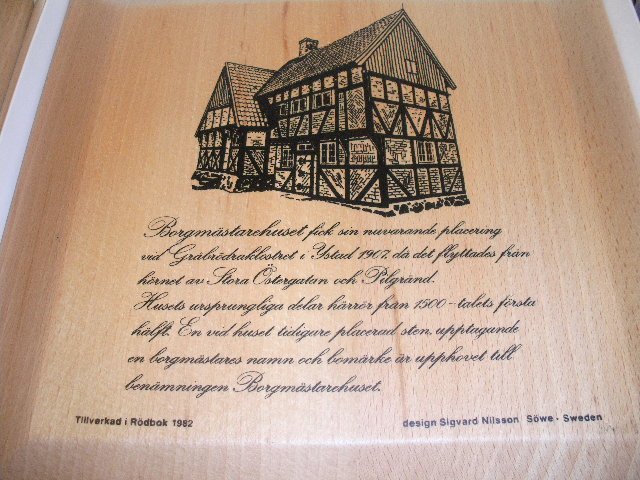 Borgmästarehuset fick sin nuvarande placering
vid Gråbrödraklostret i Ystad 1907, då det flyttades från
hörnet av Stora Östergatan och Pilgränd.
Husets ursprungliga delar härrör från 1500-talets första
hälft. En vid huset tidigare placerad sten, upptagande
en borgmästares namn och bomärke är upphovet till
benämningen Borgmästarehuset.
Tillverkad i Rödbok 1982
design Sigvard Nilsson Söwe · Sweden